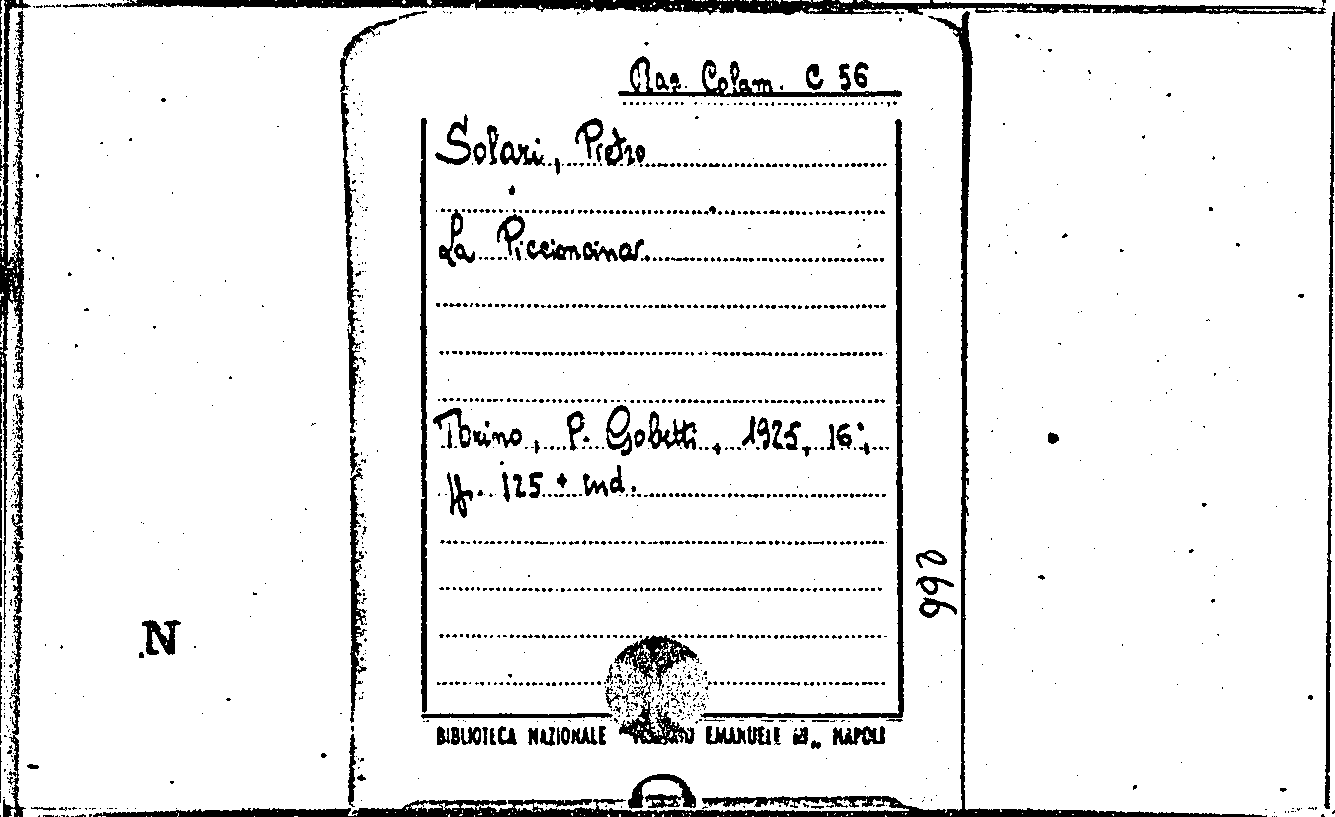 Raz. Colam. C 56
Solari, Pietro
La Piccioncina.
Torino, P. Gobetti, 1925, 16°,
pp. 125 + ind.
266
N.
BIBLIOTECA NAZIONALE "VITTORIO EMANUELE III„ NAPOLI